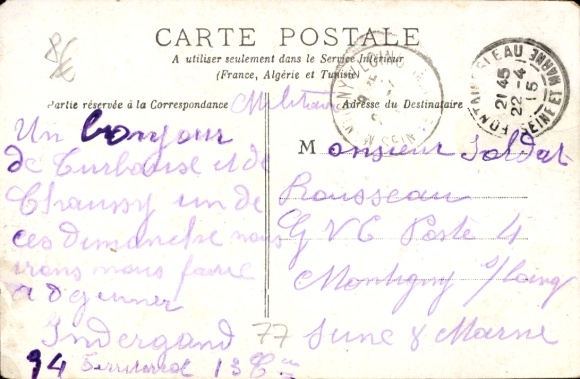 8€
CARTE POSTALE
A utiliser seulement dans le Service Intérieur
(France, Algérie et Tunisie)
Partie réservée à la Correspondance
Militaire
Adresse du Destinataire
FONTAINEBLEAU
21 45
22 -4
15
SEINE ET MARNE
Un bonjour
de Turbause et de
Chaussy un de
ces dimanche nous
irons nous faire
a
Indergand
14
13
M onsieur Soldat
Rousseau
GVC Poste 4
Montigny s/Loing
77 Seine & Marne